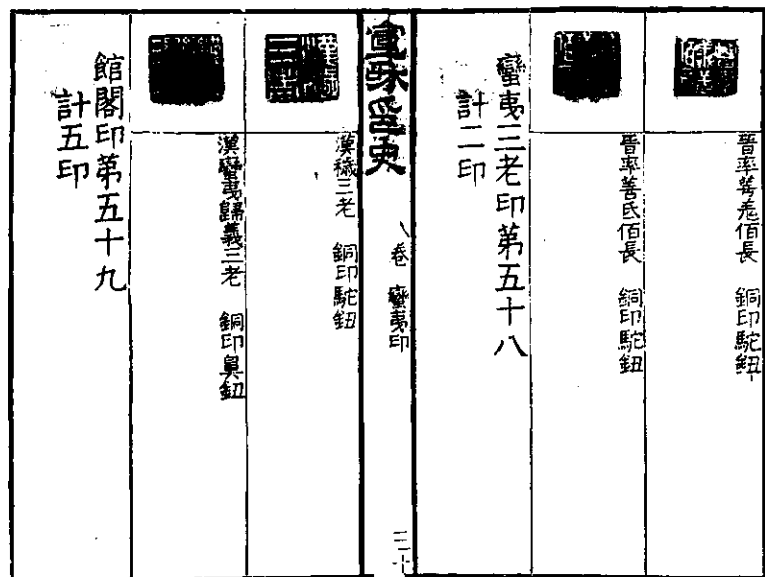 晉率善羌佰長　銅印駝鈕
晉率善氐佰長　銅印駝鈕
蠻夷三老印第五十八
計二印
宣龢印史
卷　蠻夷印
三十
漢穢三老　銅印駝鈕
漢蠻夷歸義三老　銅印鼻鈕
館閣印第五十九
計五印